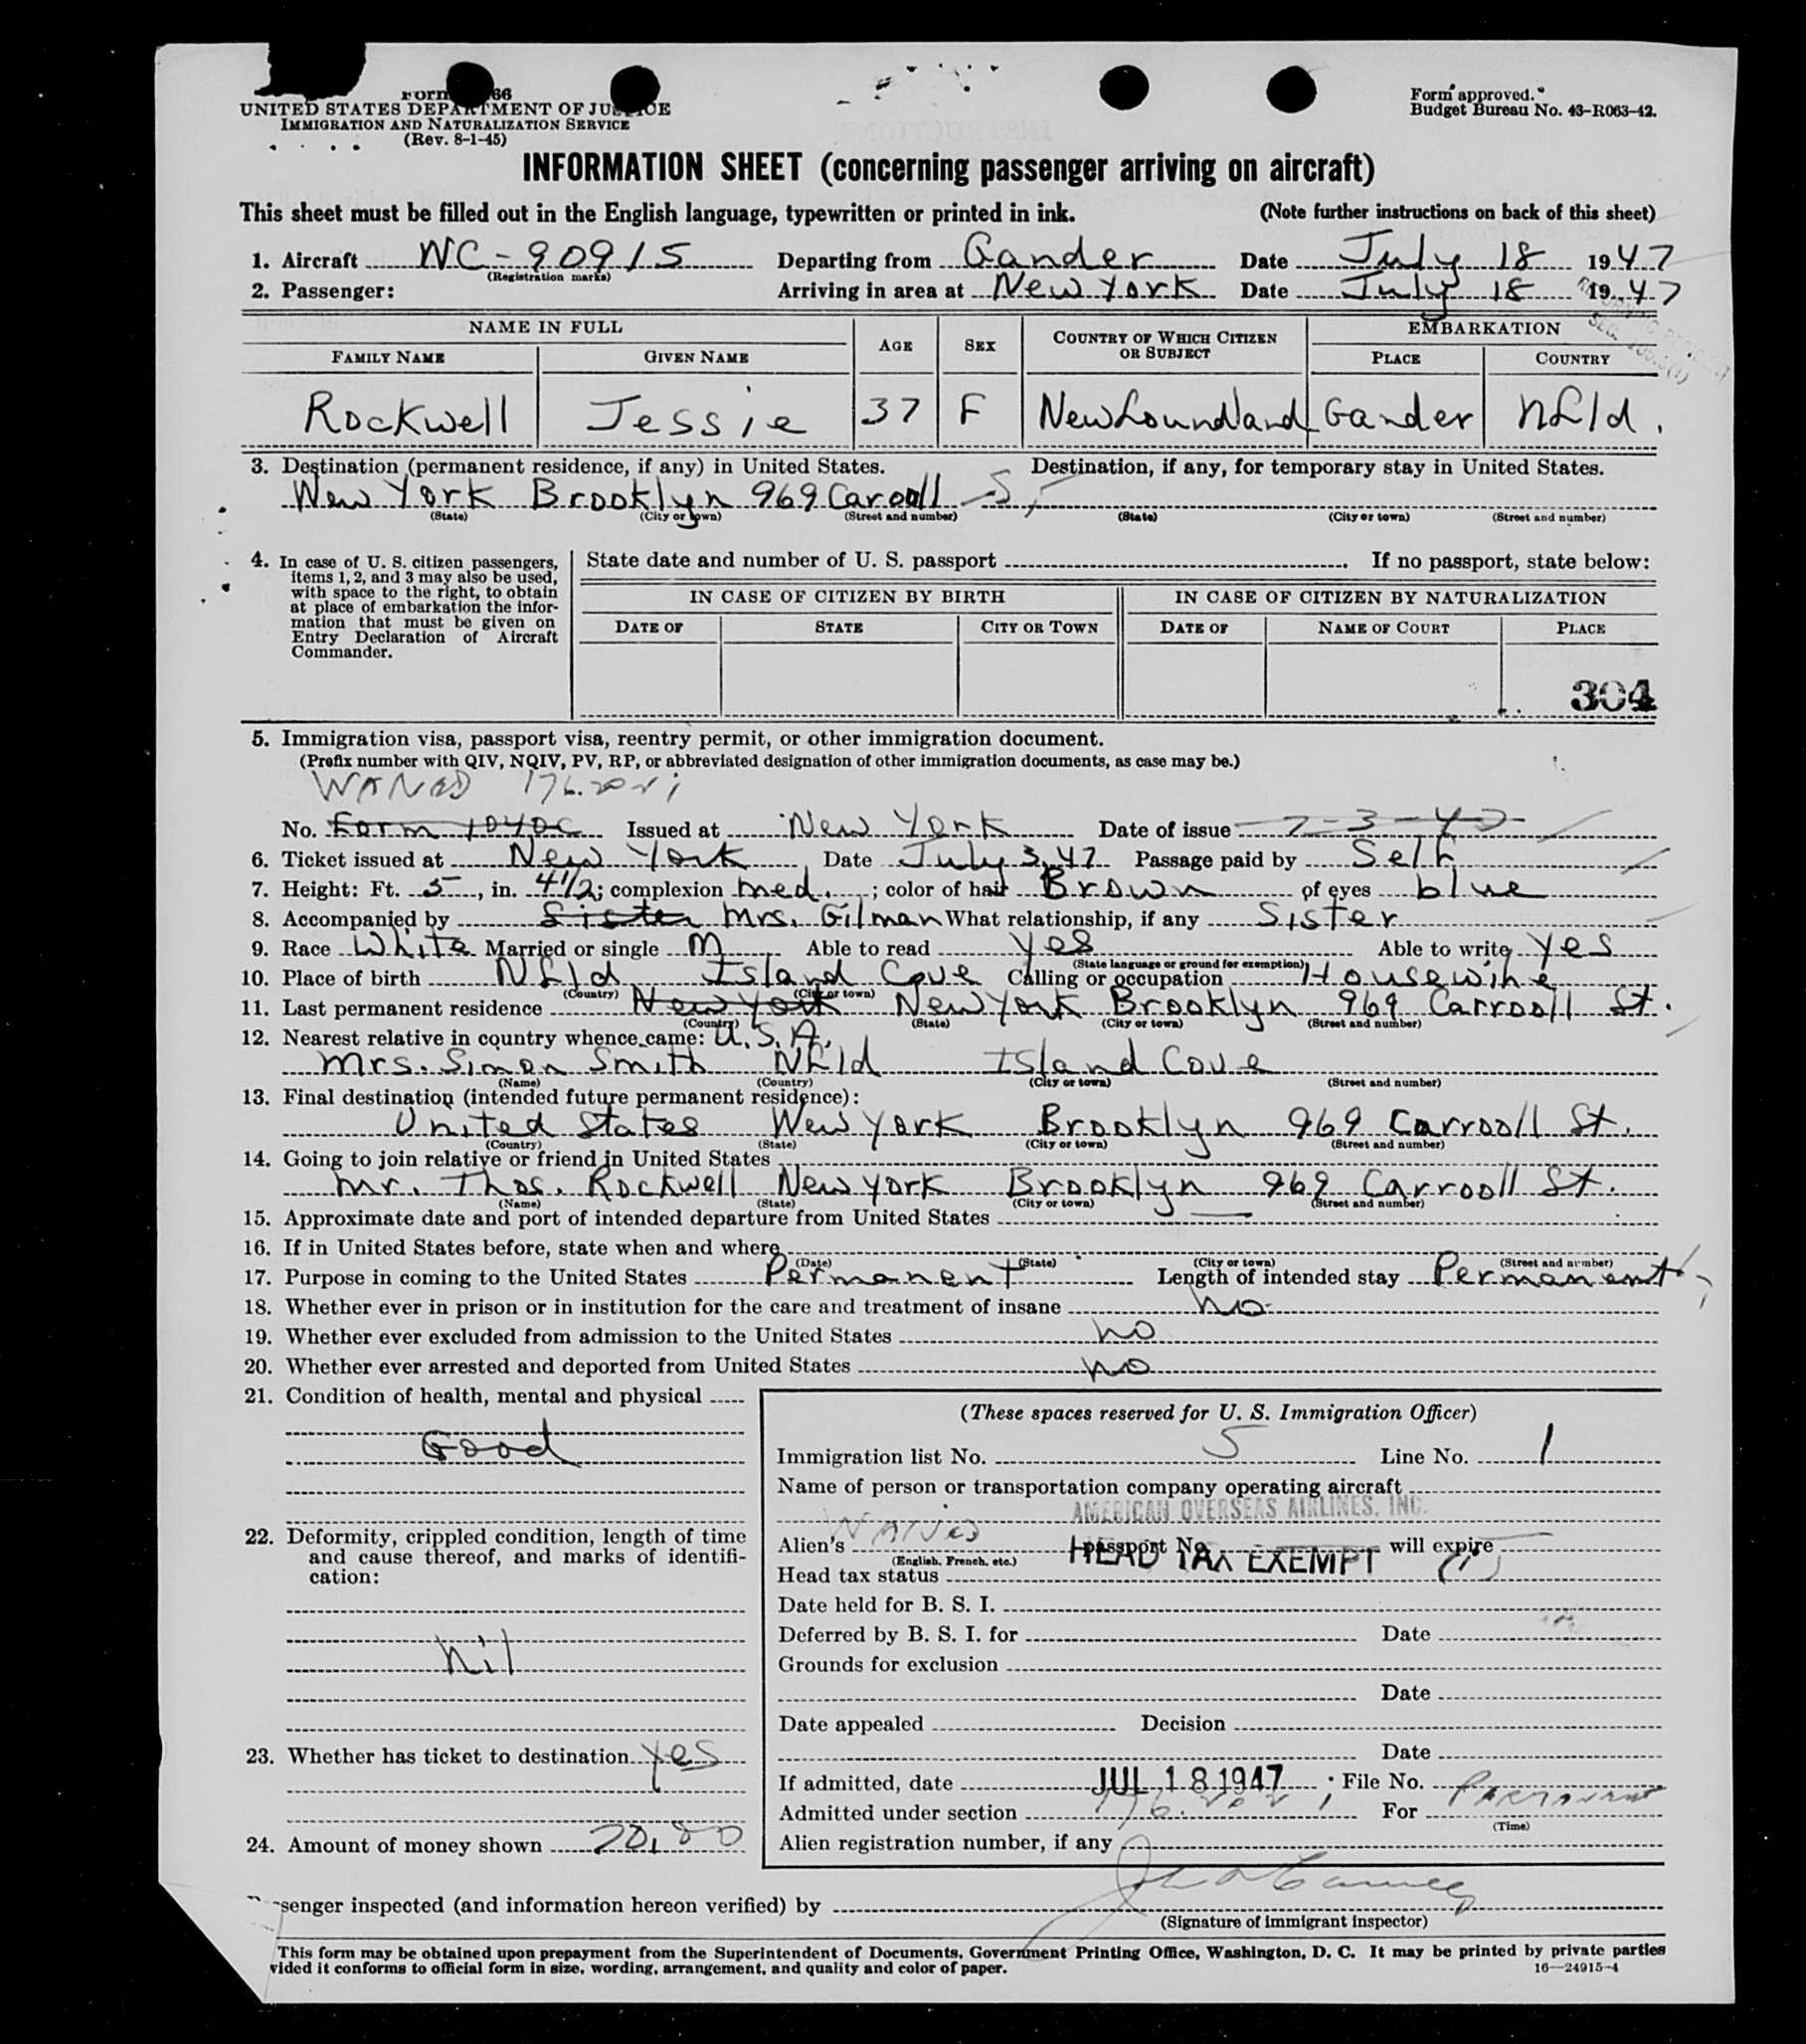 Form 66
UNITED STATES DEPARTMENT OF JUSTICE
IMMIGRATION AND NATURALIZATION SERVICE
(Rev. 8-1-45)
Form approved.
Budget Bureau No. 43-R063-42.
INFORMATION SHEET (concerning passenger arriving on aircraft)
This sheet must be filled out in the English language, typewritten or printed in ink. (Note further instructions on back of this sheet)
1. Aircraft NC-90915 Departing from Gander Date July 18 1947
(Registration marks)
2. Passenger: Arriving in area at New York Date July 18 1947
NAME IN FULL AGE SEX COUNTRY OF WHICH CITIZEN OR SUBJECT EMBARKATION
FAMILY NAME GIVEN NAME PLACE COUNTRY
Rockwell Jessie 37 F Newfoundland Gander Nfld.
3. Destination (permanent residence, if any) in United States. Destination, if any, for temporary stay in United States.
New York Brooklyn 969 Carooll S
(State) (City or town) (Street and number) (State) (City or town) (Street and number)
4. In case of U. S. citizen passengers, items 1, 2, and 3 may also be used, with space to the right, to obtain at place of embarkation the information that must be given on Entry Declaration of Aircraft Commander.
State date and number of U. S. passport If no passport, state below:
IN CASE OF CITIZEN BY BIRTH IN CASE OF CITIZEN BY NATURALIZATION
DATE OF STATE CITY OR TOWN DATE OF NAME OF COURT PLACE
304
5. Immigration visa, passport visa, reentry permit, or other immigration document.
(Prefix number with QIV, NQIV, PV, RP, or abbreviated designation of other immigration documents, as case may be.)
No. Form 1040C Issued at New York Date of issue 7-3-47
6. Ticket issued at New York Date July 3, 47 Passage paid by Self
7. Height: Ft. 5, in. 4 1/2; complexion med.; color of hair Brown of eyes blue
8. Accompanied by Sister Mrs. Gilman What relationship, if any Sister
9. Race White Married or single M Able to read yes Able to write yes
(State language or ground for exemption)
10. Place of birth Nfld Island Cove Calling or occupation Housewife
(Country) (City or town)
11. Last permanent residence New York New York Brooklyn 969 Carrooll St.
(Country) (State) (City or town) (Street and number)
12. Nearest relative in country whence came: U.S.A.
Mrs. Simon Smith Nfld Island Cove
(Name) (Country) (City or town) (Street and number)
13. Final destination (intended future permanent residence):
United States New York Brooklyn 969 Carrooll St.
(Country) (State) (City or town) (Street and number)
14. Going to join relative or friend in United States
Mr. Thos. Rockwell New York Brooklyn 969 Carrooll St.
(Name) (State) (City or town) (Street and number)
15. Approximate date and port of intended departure from United States
16. If in United States before, state when and where
(Date) (State) (City or town) (Street and number)
17. Purpose in coming to the United States Permanent Length of intended stay Permanent
18. Whether ever in prison or in institution for the care and treatment of insane no
19. Whether ever excluded from admission to the United States no
20. Whether ever arrested and deported from United States no
21. Condition of health, mental and physical
Good
22. Deformity, crippled condition, length of time and cause thereof, and marks of identification:
Nil
23. Whether has ticket to destination yes
24. Amount of money shown 20.00
(These spaces reserved for U. S. Immigration Officer)
Immigration list No. 5 Line No. 1
Name of person or transportation company operating aircraft
AMERICAN OVERSEAS AIRLINES, INC.
Alien's Waived passport No. will expire
(English, French, etc.)
HEAD TAX EXEMPT (1)
Head tax status
Date held for B. S. I.
Deferred by B. S. I. for Date
Grounds for exclusion
Date
Date appealed Decision
Date
If admitted, date JUL 18 1947; File No.
Admitted under section For Permanent
(Time)
Alien registration number, if any
senger inspected (and information hereon verified) by
(Signature of immigrant inspector)
This form may be obtained upon prepayment from the Superintendent of Documents, Government Printing Office, Washington, D. C. It may be printed by private parties
vided it conforms to official form in size, wording, arrangement, and quality and color of paper. 16—24915-4